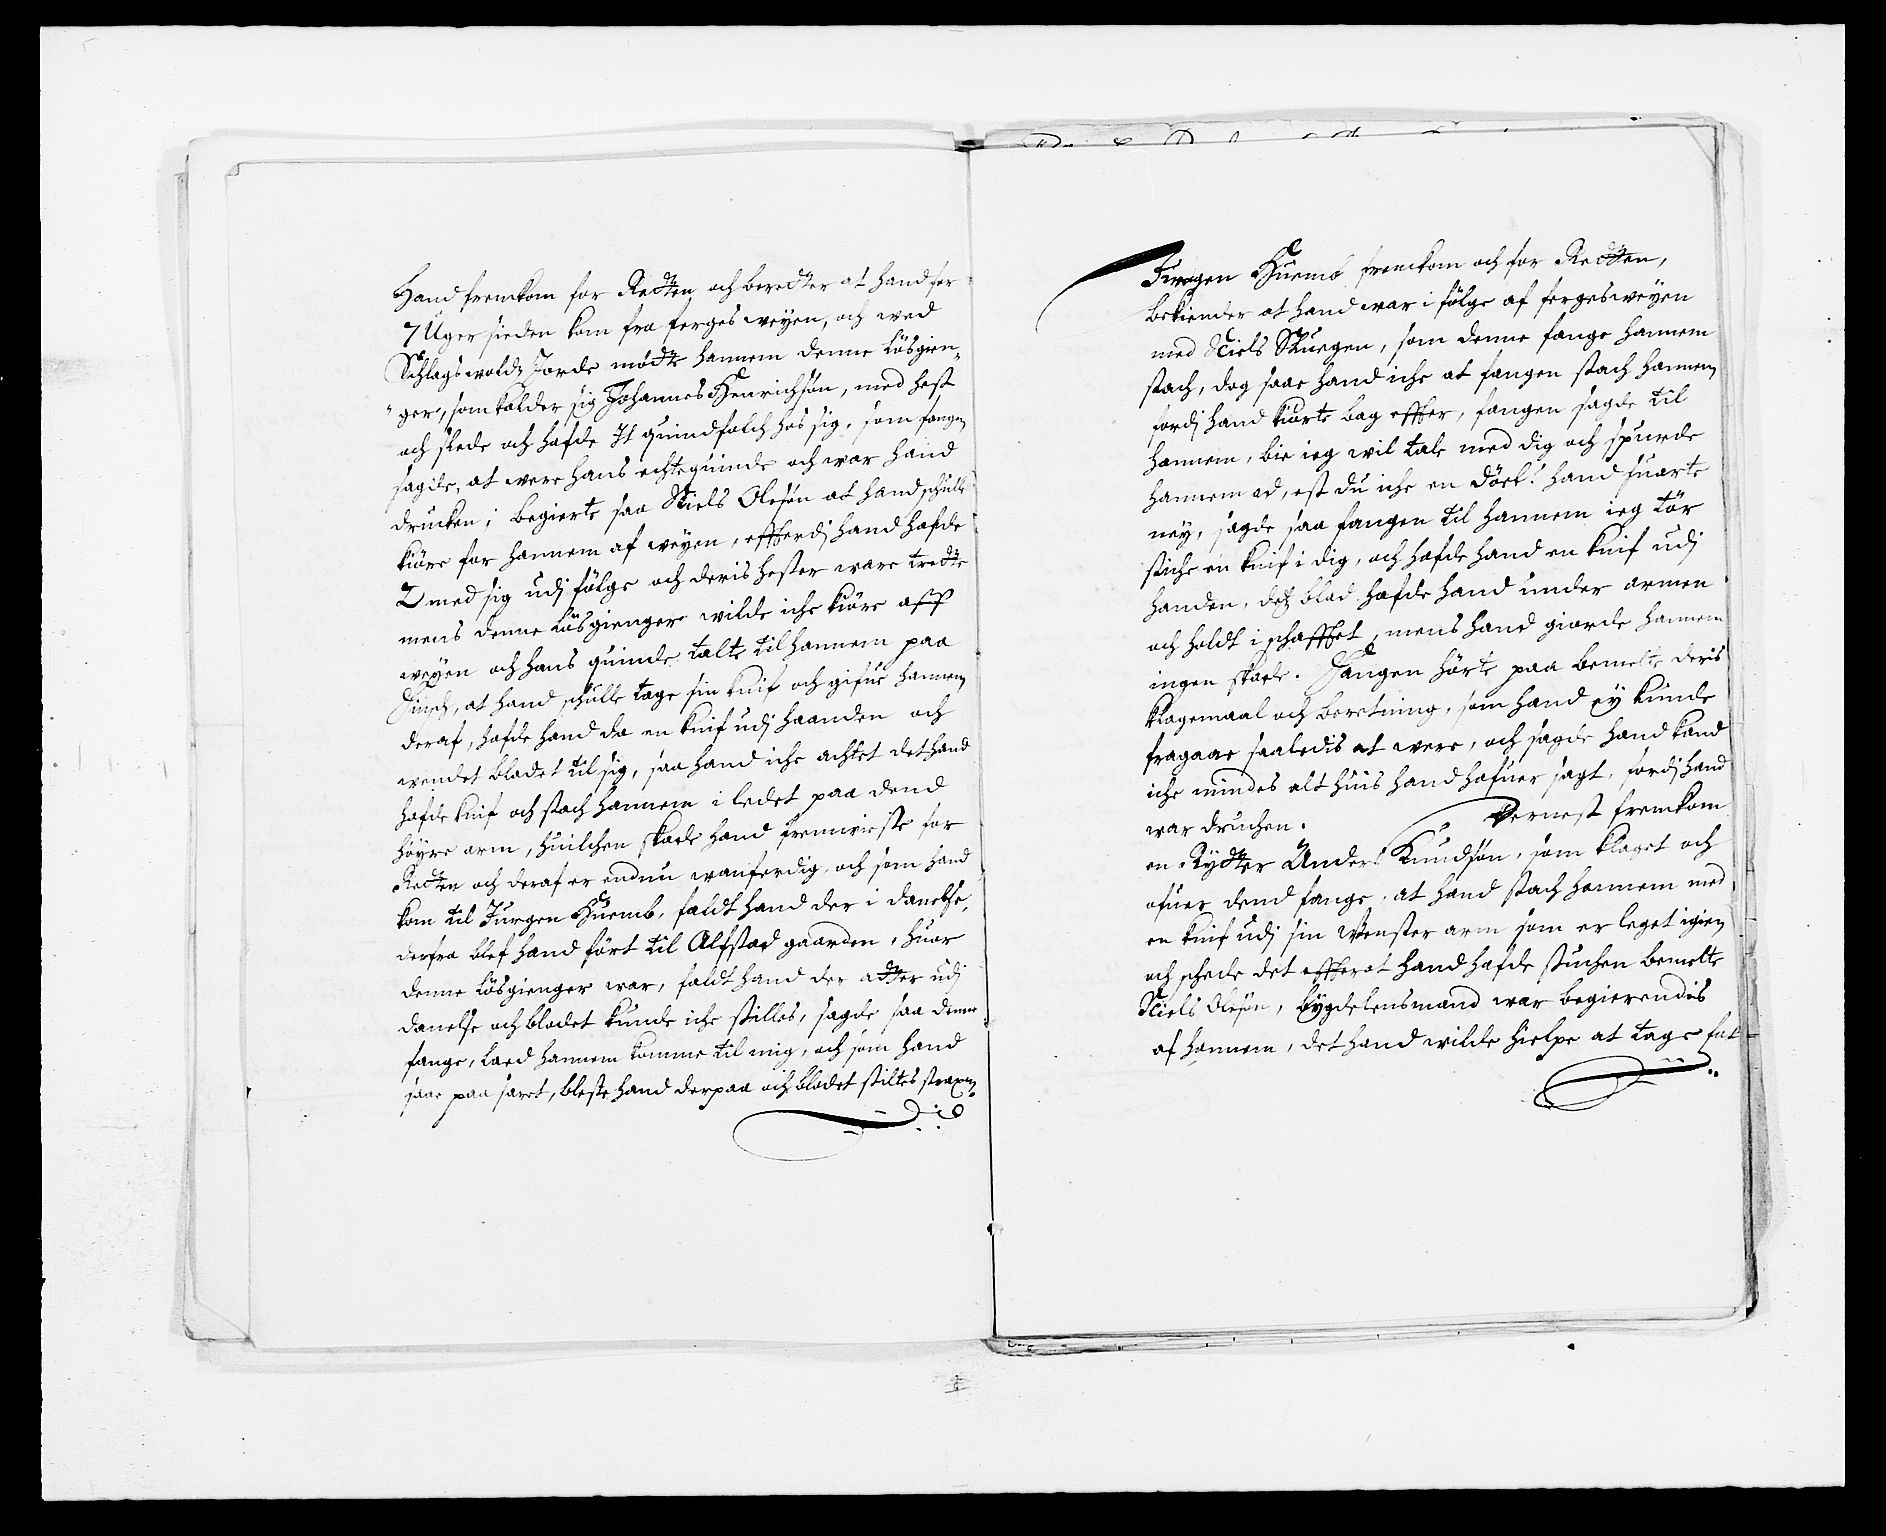 Hand fremkom for Retten och beretter at hand for
7 Uger sieden kom fra ferges weyen, och wed
Schlagswoldz Jorde mødte hannem denne Løsgien„
„ger, som kalder sig Johannes Henrichsøn, med hest
och slede och hafde It quindfolch hos sig, som fangen
sagde, at were hans echtequinde och war hand
drucken; begierte saa Niels Olesøn at hand schulle
kiøre for hannem af weyen, effterdj hand hafde
2 med sig udj følge och deris hester ware trette
mens denne Løsgienger wilde iche kiøre aff
weyen och hans quinde talte til hannem paa
Finsch, at hand schulle tage sin knif och gifue hannem
deraf, hafde hand da en knif udj haanden och
wendet bladet til sig, saa hand iche achtet det hand
hafde knif och stach hannem i ledet paa dend
høyre arm, huilchen skade hand fremwiste for
Retten och deraf er endnu wanferdig, och som hand
kom til Jurgen Huemb, faldt hand der i danelse,
derfra blef hand ført til Alfstad gaarden, huor
denne Løsgienger war, faldt hand der atter udj
danelse och blodet kunde iche stilles, sagde saa denne
fange, laed hannem komme til mig, och som hand
saae paa saret, bleste hand derpaa och blodet stiltes straxen.
Jurgen Huemb fremkom och for Retten,
bekiender at hand war i følge af fergesweyen
med Niels Skuegen, som denne fange hannem
stach, dog saae hand iche at fangen stach hannem
fordj hand kiørte bag effter, fangen sagde til
hannem, bie ieg wil tale med dig och spurde
hannem ad, est du iche en Dørl: hand suarte
ney, sagde saa fangen til hannem ieg tør
stiche en knif i dig, och hafde hand en knif udj
handen, detz blad hafde hand under armen
och holdt i schafftet, mens hand giorde hannem
ingen skade. Fangen hørte paa bemelte deris
klagemaal och beretning, som hand ey kunde
fragaae saaledis at were, och sagde hand kand
iche mindes alt huis hand hafuer sagt, fordj hand
war druchen. Dernest fremkom
en Rytter Anders Knudsøn, som klaget och
ofuer dend fange, at hand stach hannem med
en knif udj sin Wenster arm som er leget igien
och schede det effter at hand hafde stuchen bemelte
Niels Olesøn, bygdelensmand war begierendis
af hannem, det hand wilde hielpe at tage fat